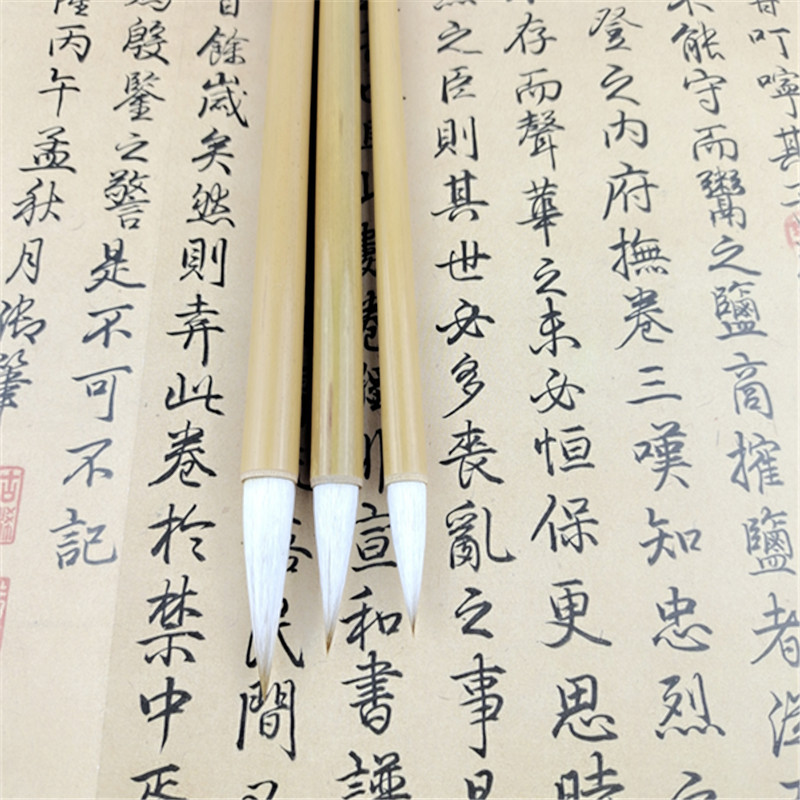 叮嚀其
能守而鬻之鹽商鹽者
登之内府撫卷三嘆知忠烈之
存而聲華之未必恒保更思時
之臣則其世必多喪亂之事
卷宣和書譜
民間
餘歲矣然則弆此卷於禁中
殷鑒之警是不可不記
隆丙午孟秋月御筆